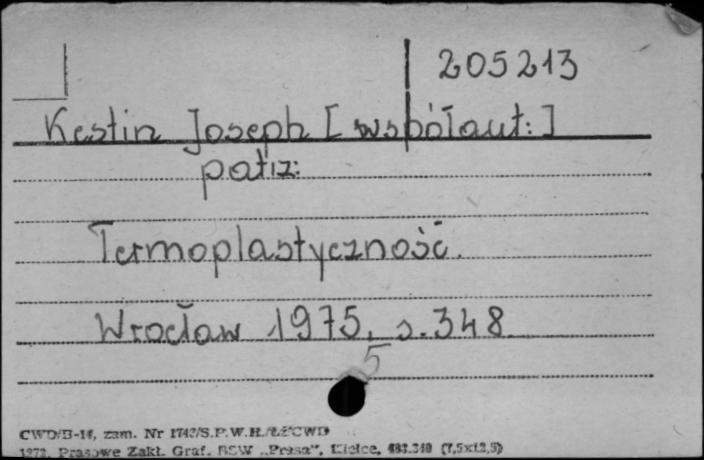 205213
Kestin Joseph [współaut:]
patrz:
Termoplastyczność.
Wrocław 1975, s. 348
5
CWD/B-14, zam. Nr 1742/S.P.W.H./ŁŹCWD
1972. Prasowe Zakł. Graf. RSW „Prasa”, Kielce, (7,5x12,5)